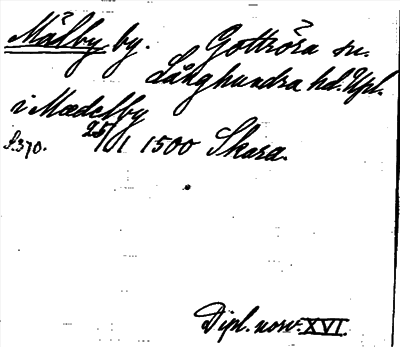 Målby by. Gottröra sn.
Långhundra hd. Upl.
i Mædelby
S. 370. 25/1 1500 Skara.
Dipl. norv. XVI.